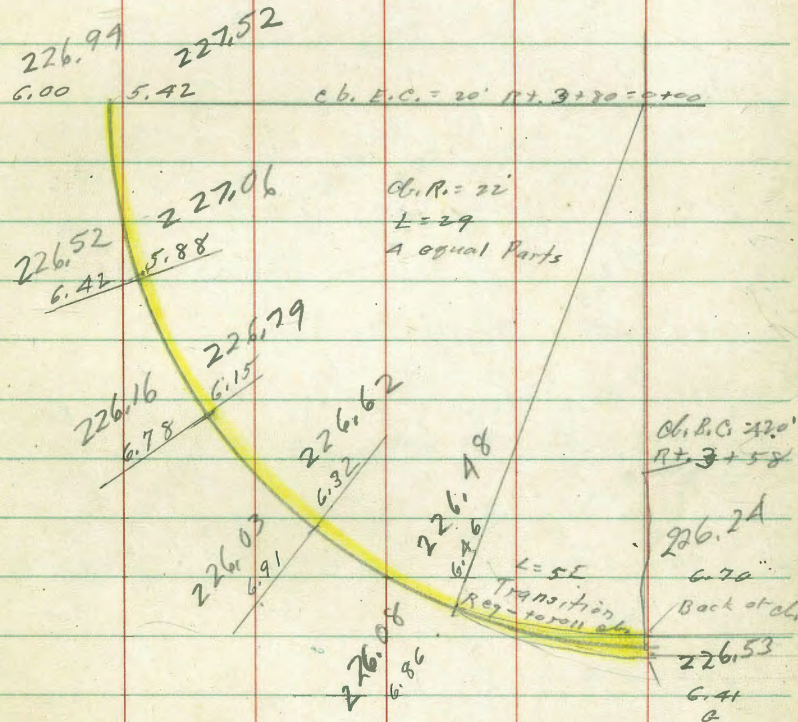 226.94 227.52
6.00 5.42 cb. E.C. = 20' Rt. 3+80 = 0+00
cb. R. = 22'
L = 29
4 equal Parts
227.06
226.52 5.88
6.42
226.79
226.16 6.15
6.78
226.62
6.32
226.03
6.91
226.48
6.46
226.08
6.86
L = 5
Transition
Reg - to roll cb.
Cb. B.C. = 42.0'
Rt. 3+58
226.24
6.70
Back of cb.
226.53
6.41
G